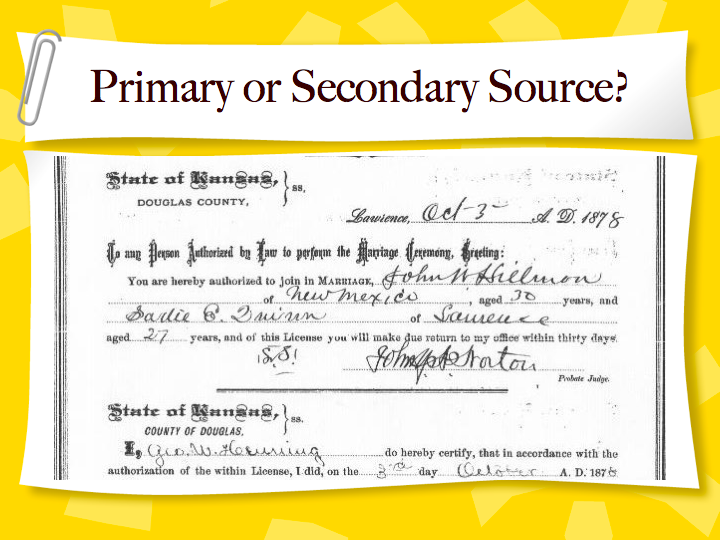 Primary or Secondary Source?
State of Kansas, } ss,
DOUGLAS COUNTY,
Lawrence, Oct 3 A. D. 1878
To any Person Authorized by Law to perform the Marriage Ceremony, Greeting:
You are hereby authorized to join in MARRIAGE, John W Hillmon
of New Mexico, aged 30 years, and
Sadie E. Quinn of Lawrence
aged 27 years, and of this License you will make due return to my office within thirty days.
John Q A Norton
Probate Judge.
State of Kansas, } ss.
COUNTY OF DOUGLAS,
I, Geo. W. Henning do hereby certify, that in accordance with the
authorization of the within License, I did, on the 3rd day October A. D. 1878